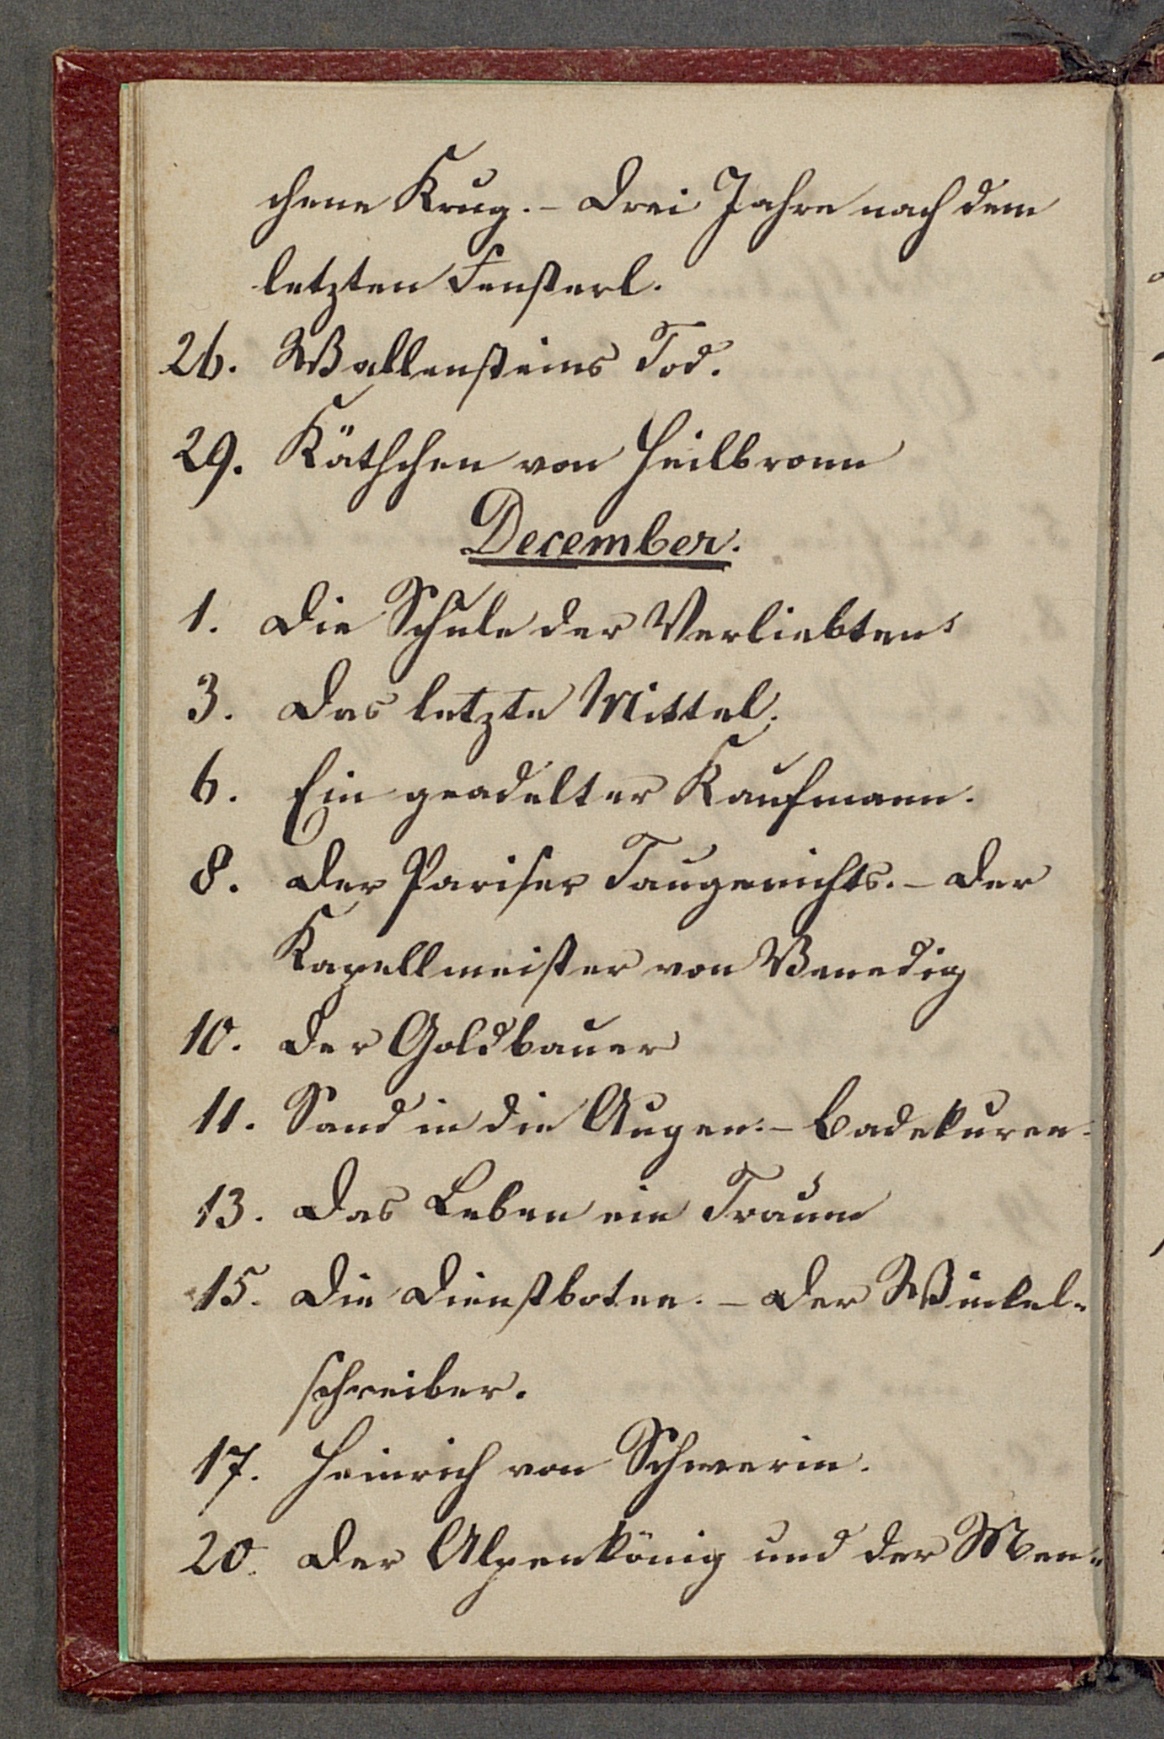 chene Krug. – Drei Jahre nach dem
letzten Fensterl.
26. Wallensteins Tod.
29. Käthchen von Heilbronn
December.
1. Die Schule der Verliebten.
3. Das letzte Mittel.
6. Ein geadelter Kaufmann.
8. Der Pariser Taugenichts. – Der
Kapellmeister von Venedig
10. Der Goldbauer
11. Sand in die Augen. – Badekuren.
13. Das Leben ein Traum
15. Die Dienstboten. – Der Winkel-
schreiber.
17. Heinrich von Schwerin.
20. Der Alpenkönig und der Men-